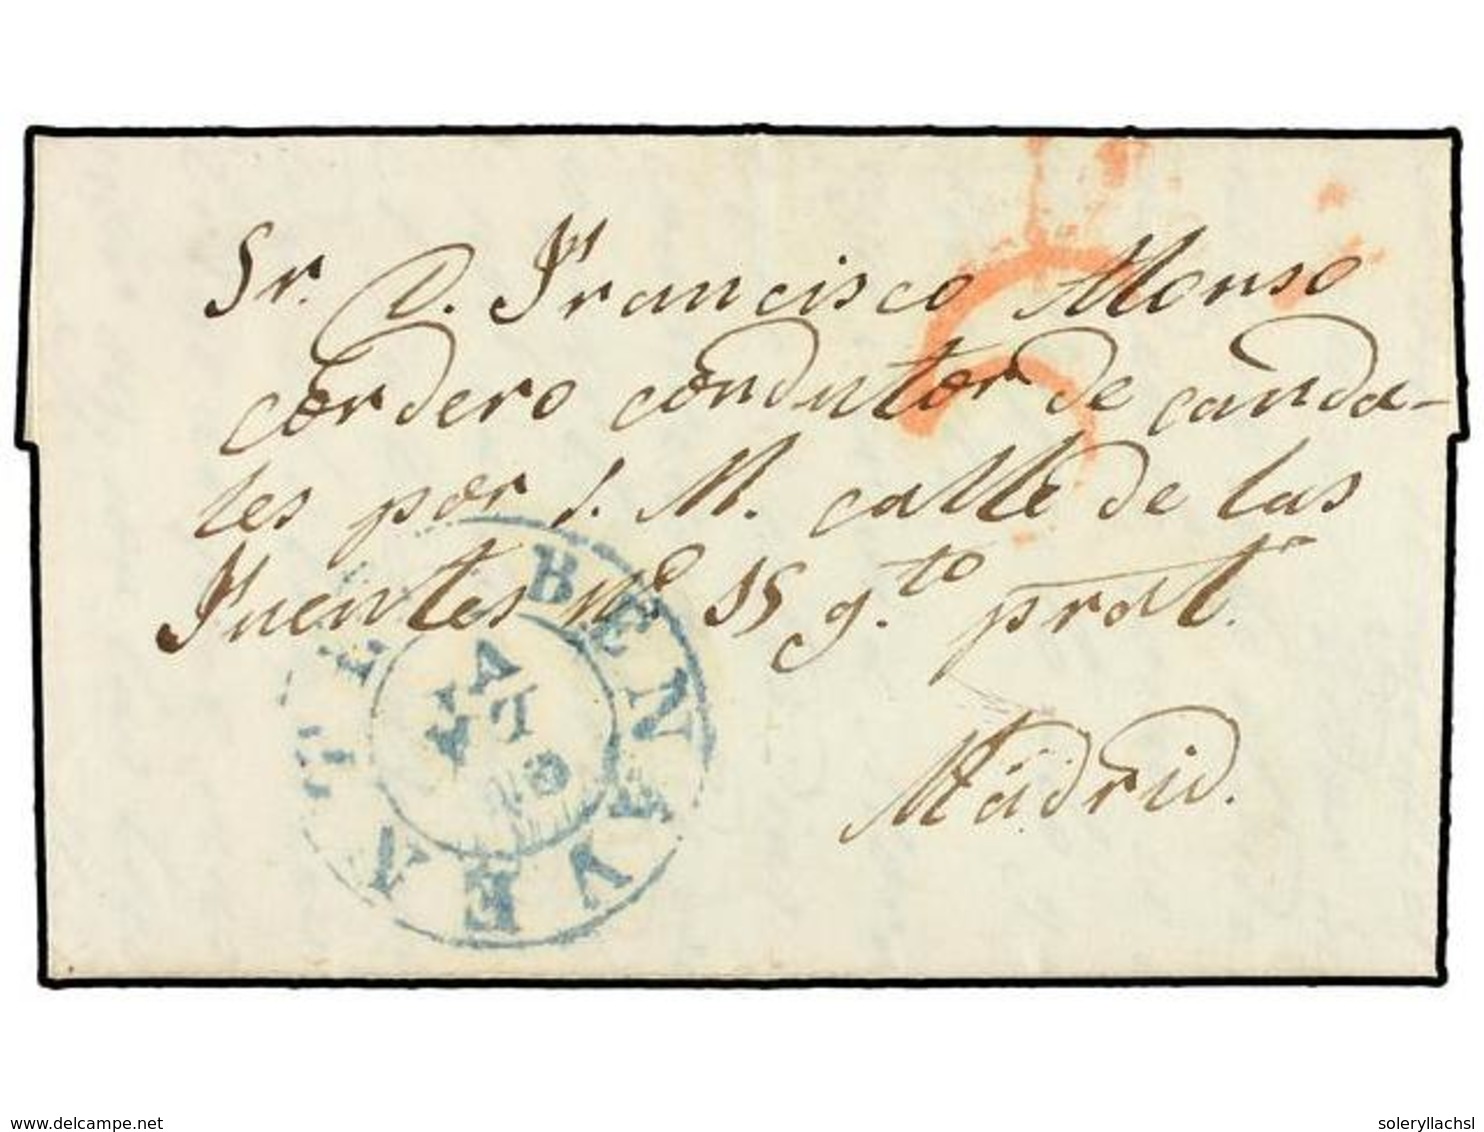 Sr. D. Francisco Alonso
cordero condutor de cauda-
les por S. M. calle de las
Fuentes nº 15 g.to pral.
Madrid.
BENAVENTE
delcampe.net
soleryllachsl